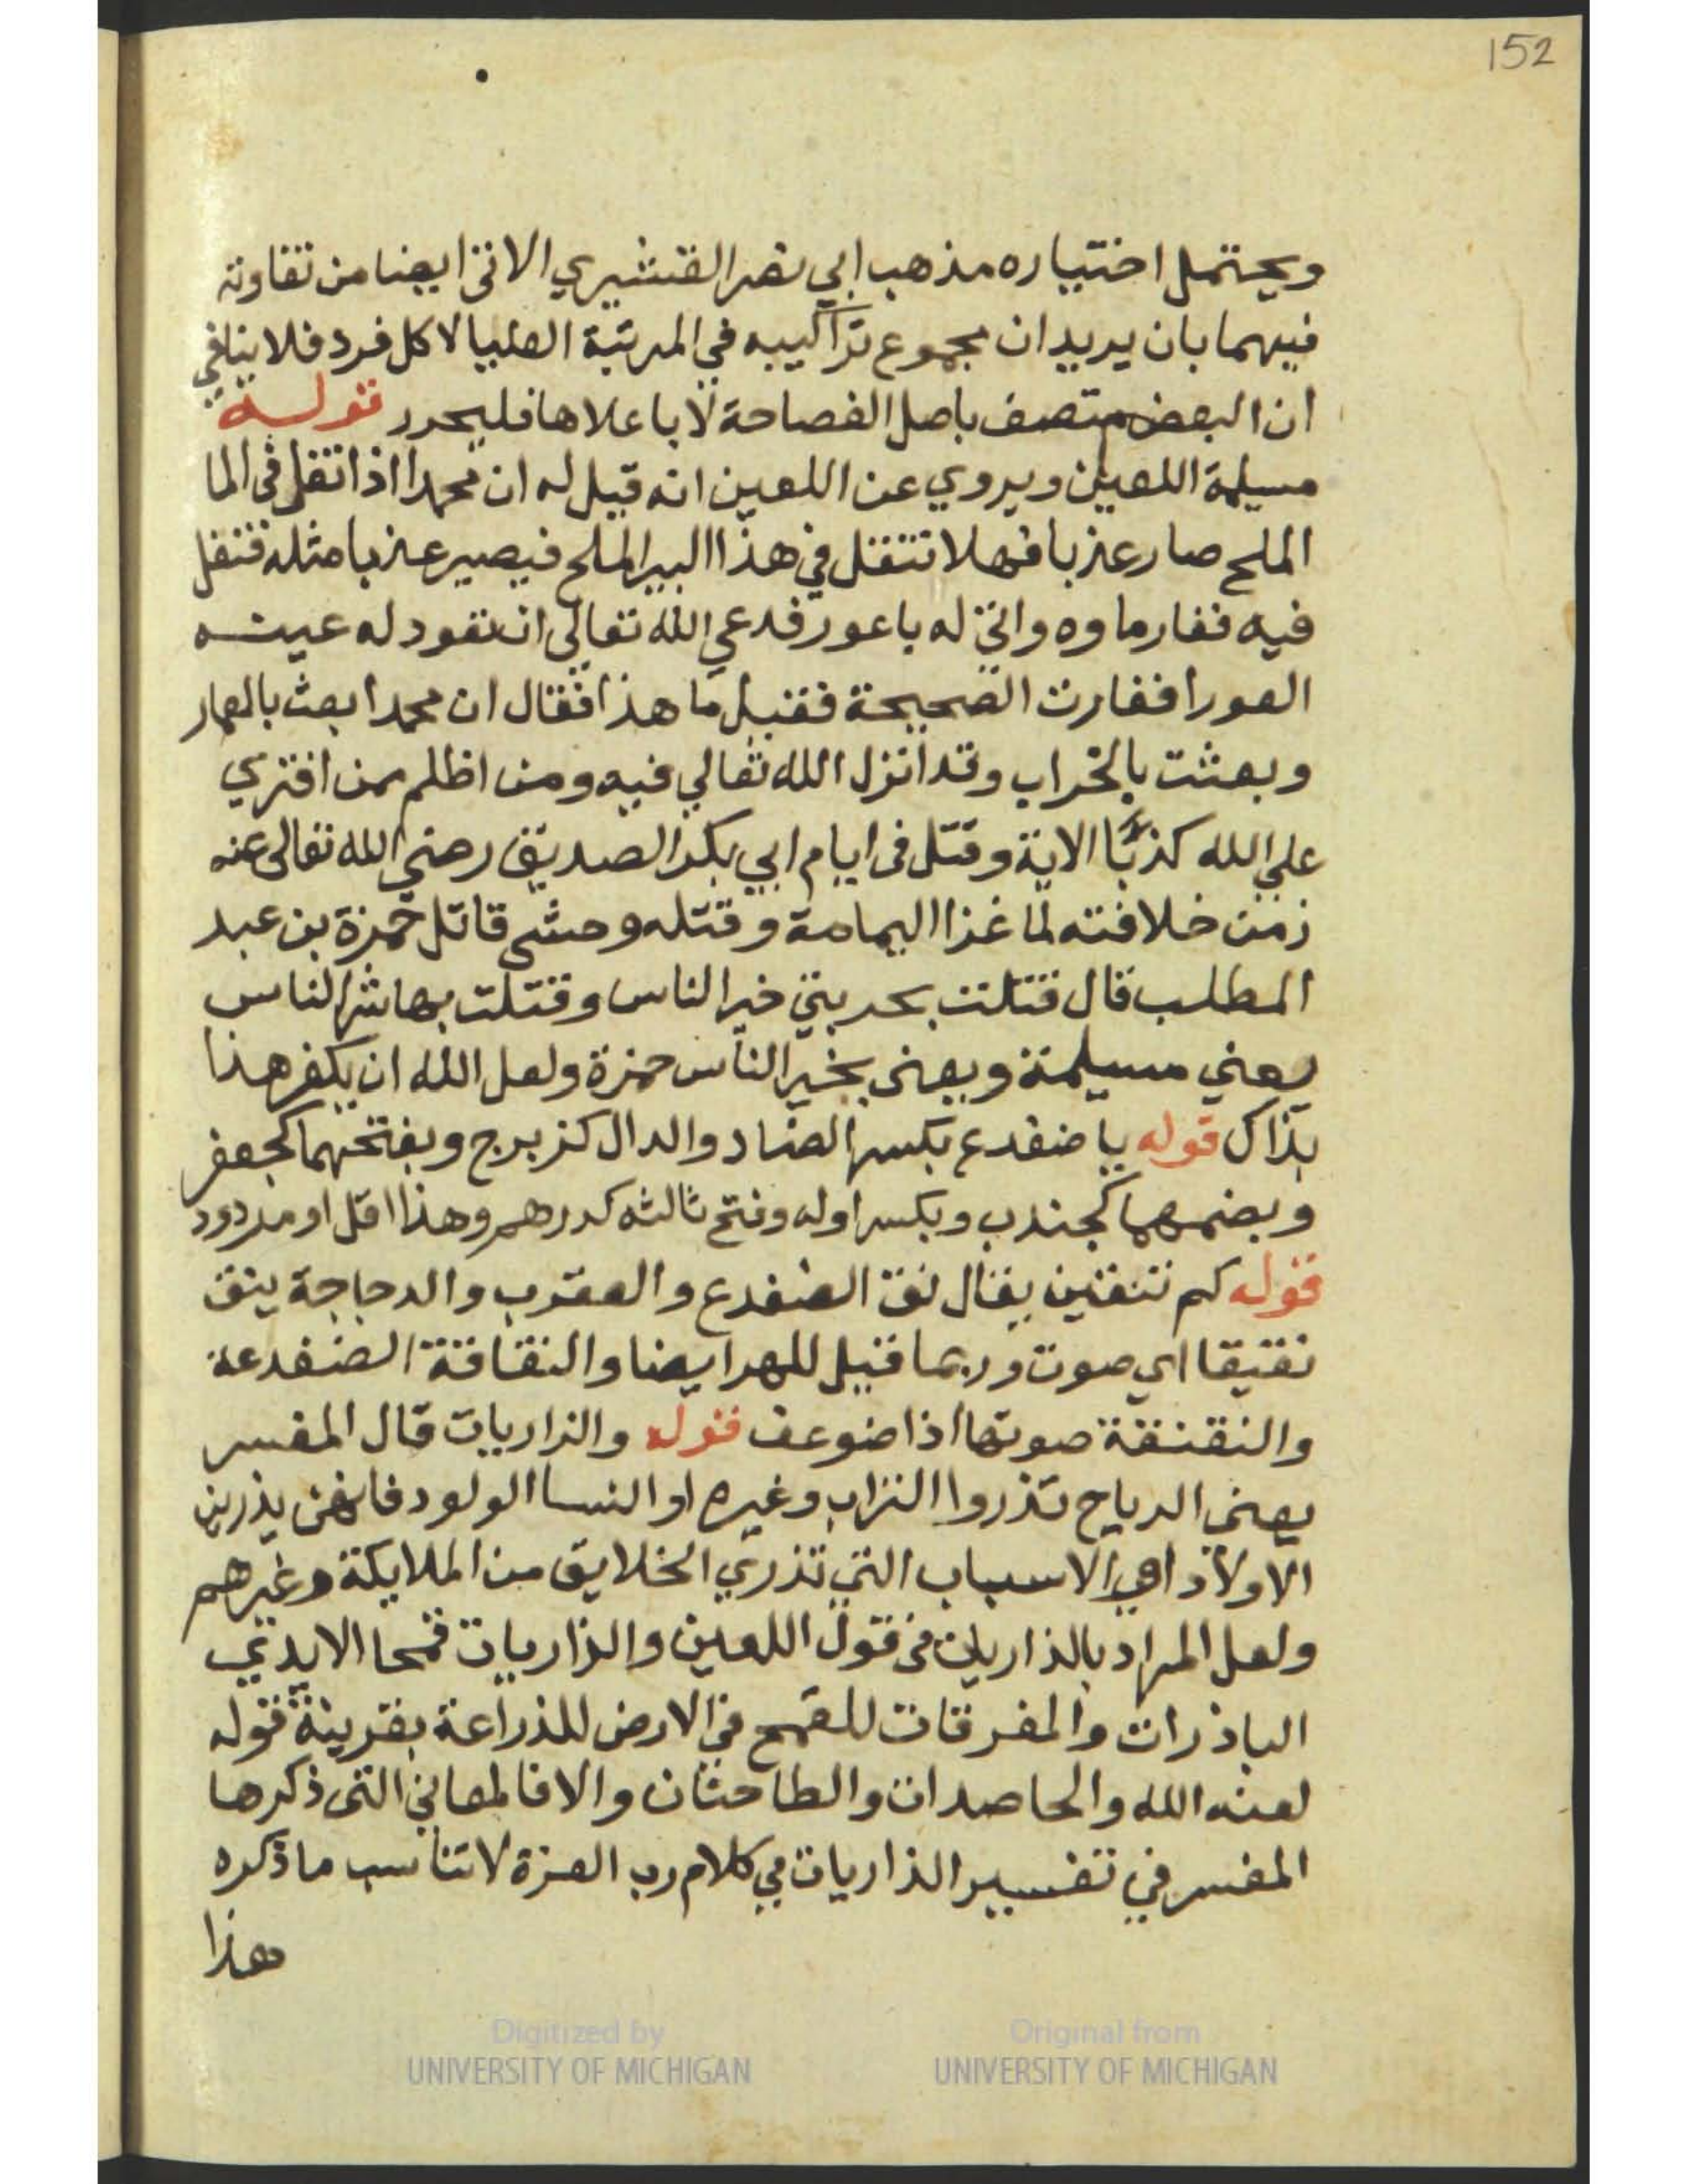 152
ويحتمل اختياره مذهب ابي نصر القشيري الاتي ايضا من تفاوته
فيهما بان يريد ان مجموع تراكيبه في المرتبة العليا لا كل فرد فلا ينافي
ان البعض متصف باصل الفصاحة لا باعلاها فليحرر قوله
مسيلمة اللعين ويروي عن اللعين انه قيل له ان محمدا اذا تفل في الما
الملح صار عذبا فهلا تتفل في هذا البير الملح فيصير عذبا مثله فتفل
فيه فغار ماوه واتي له باعور فدعي الله تعالي ان تعود له عينه
العورا فغارت الصحيحة فقيل ما هذا فقال ان محمدا بعث بالعمار
وبعثت بالخراب وقد انزل الله تعالي فيه ومن اظلم ممن افتري
علي الله كذبا الاية وقتل في ايام ابي بكر الصديق رضي الله تعالى عنه
زمن خلافته لما غزا اليمامة وقتله وحشي قاتل حمزة بن عبد
المطلب قال قتلت بحربتي خير الناس وقتلت بها شر الناس
يعني مسيلمة ويعني بخير الناس حمزة ولعل الله ان يكفر هذا
بذاك قوله يا ضفدع بكسر الضاد والدال كزبرج وبفتحهما كجعفر
وبضمهما كجندب وبكسر اوله وفتح ثالثه كدرهم وهذا اقل او مردود
قوله كم تنقين يقال نق الضفدع والعقرب والدجاجة ينق
نقيقا اي صوت وربما قيل للهر ايضا والنقاقة الضفدعة
والنقنقة صوتها اذا ضوعف قوله والذاريات قال المفسر
يعني الرياح تذروا التراب وغيره او النسا الولود فانهن يذرين
الاولاد اهي الاسباب التي تذري الخلايق من الملايكة وغيرهم
ولعل المراد بالذاريات في قول اللعين والذاريات قمحا الايدي
الباذرات والمفرقات للقمح في الارض للذراعة بقرينة قوله
لعنه الله والحاصدات والطاحنات والا فالمعاني التي ذكرها
المفسر في تفسير الذاريات في كلام رب العزة لا تناسب ما ذكره
هذا
Digitized by
UNIVERSITY OF MICHIGAN
Original from
UNIVERSITY OF MICHIGAN